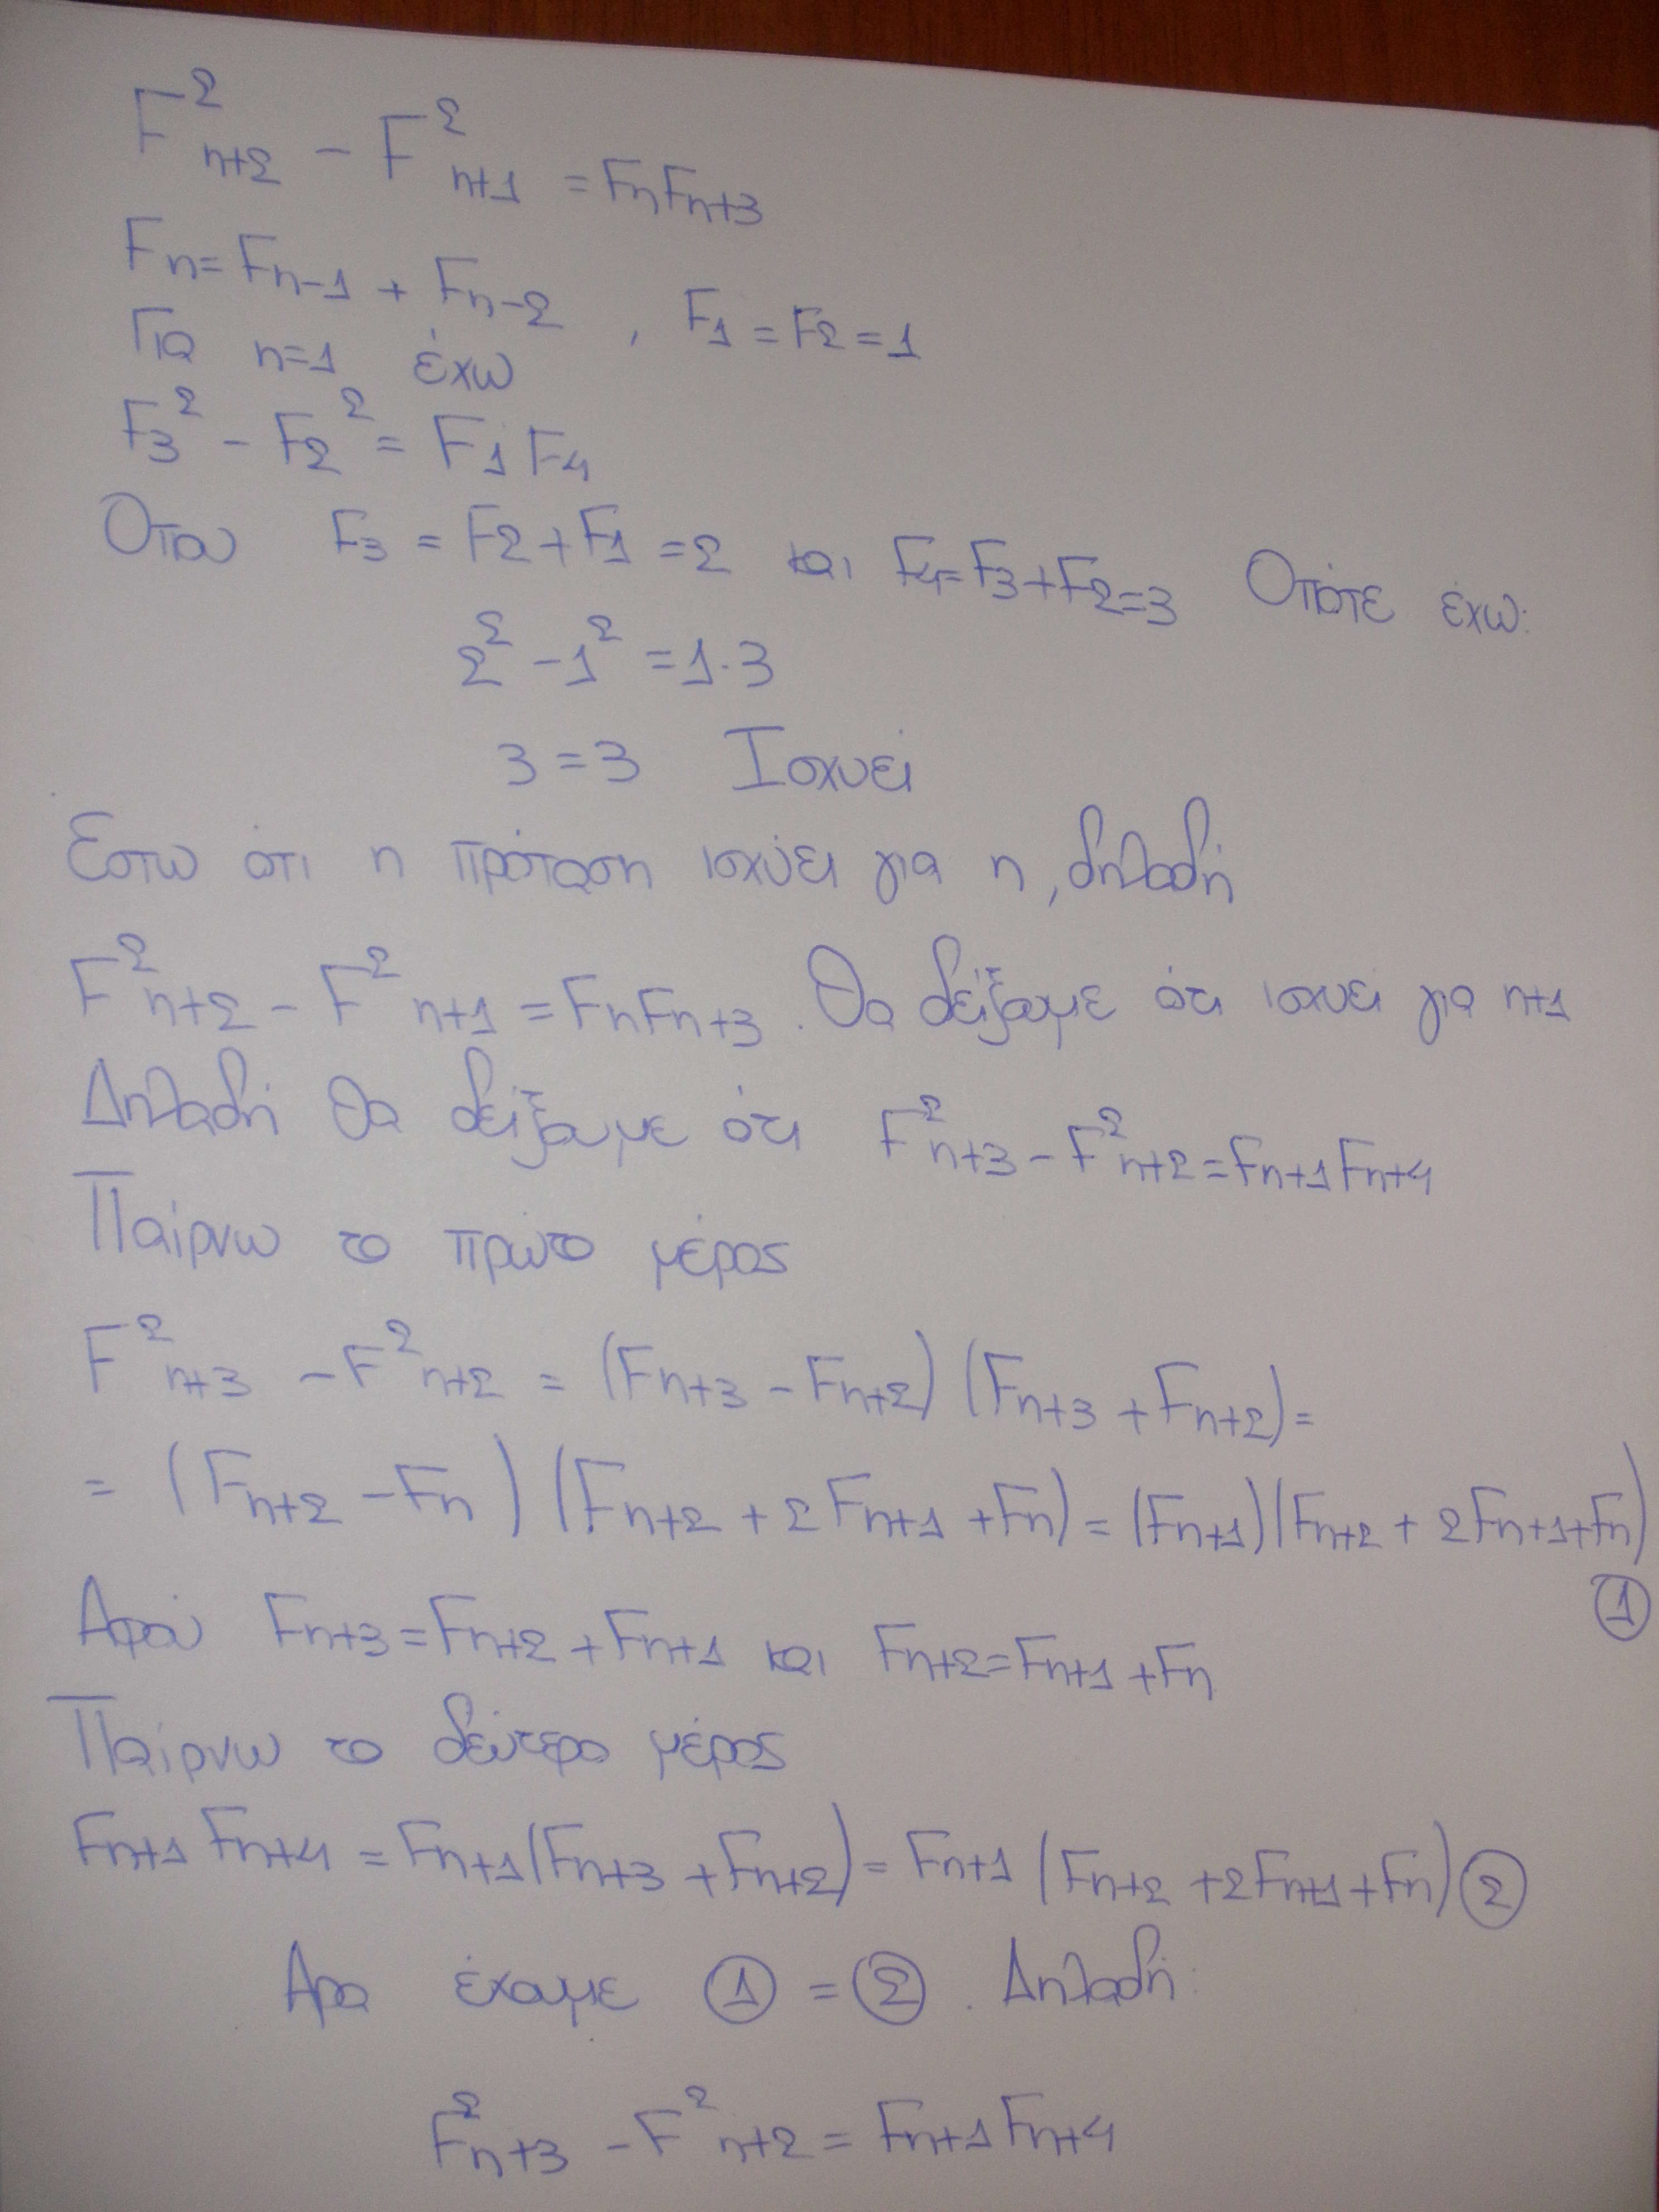 F²n+2 - F²n+1 = FnFn+3
Fn = Fn-1 + Fn-2 , F1 = F2 = 1
Για n=1 έχω
F3² - F2² = F1 F4
Οπου F3 = F2 + F1 = 2 και F4 = F3 + F2 = 3 Οπότε έχω:
2² - 1² = 1·3
3 = 3 Ισχυει
Εστω ότι η πρόταση ισχύει για n, δηλαδή
F²n+2 - F²n+1 = FnFn+3. Θα δείξουμε ότι ισχυει για n+1
Δηλαδή θα δείξουμε ότι F²n+3 - F²n+2 = Fn+1 Fn+4
Παίρνω το πρώτο μέρος
F²n+3 - F²n+2 = (Fn+3 - Fn+2) (Fn+3 + Fn+2) =
= (Fn+2 - Fn) (Fn+2 + 2Fn+1 + Fn) = (Fn+1) (Fn+2 + 2Fn+1 + Fn)
①
Αφού Fn+3 = Fn+2 + Fn+1 και Fn+2 = Fn+1 + Fn
Παίρνω το δεύτερο μέρος
Fn+1 Fn+4 = Fn+1 (Fn+3 + Fn+2) = Fn+1 (Fn+2 + 2Fn+1 + Fn) ②
Αρα έχουμε ① = ②. Δηλαδή:
F²n+3 - F²n+2 = Fn+1 Fn+4